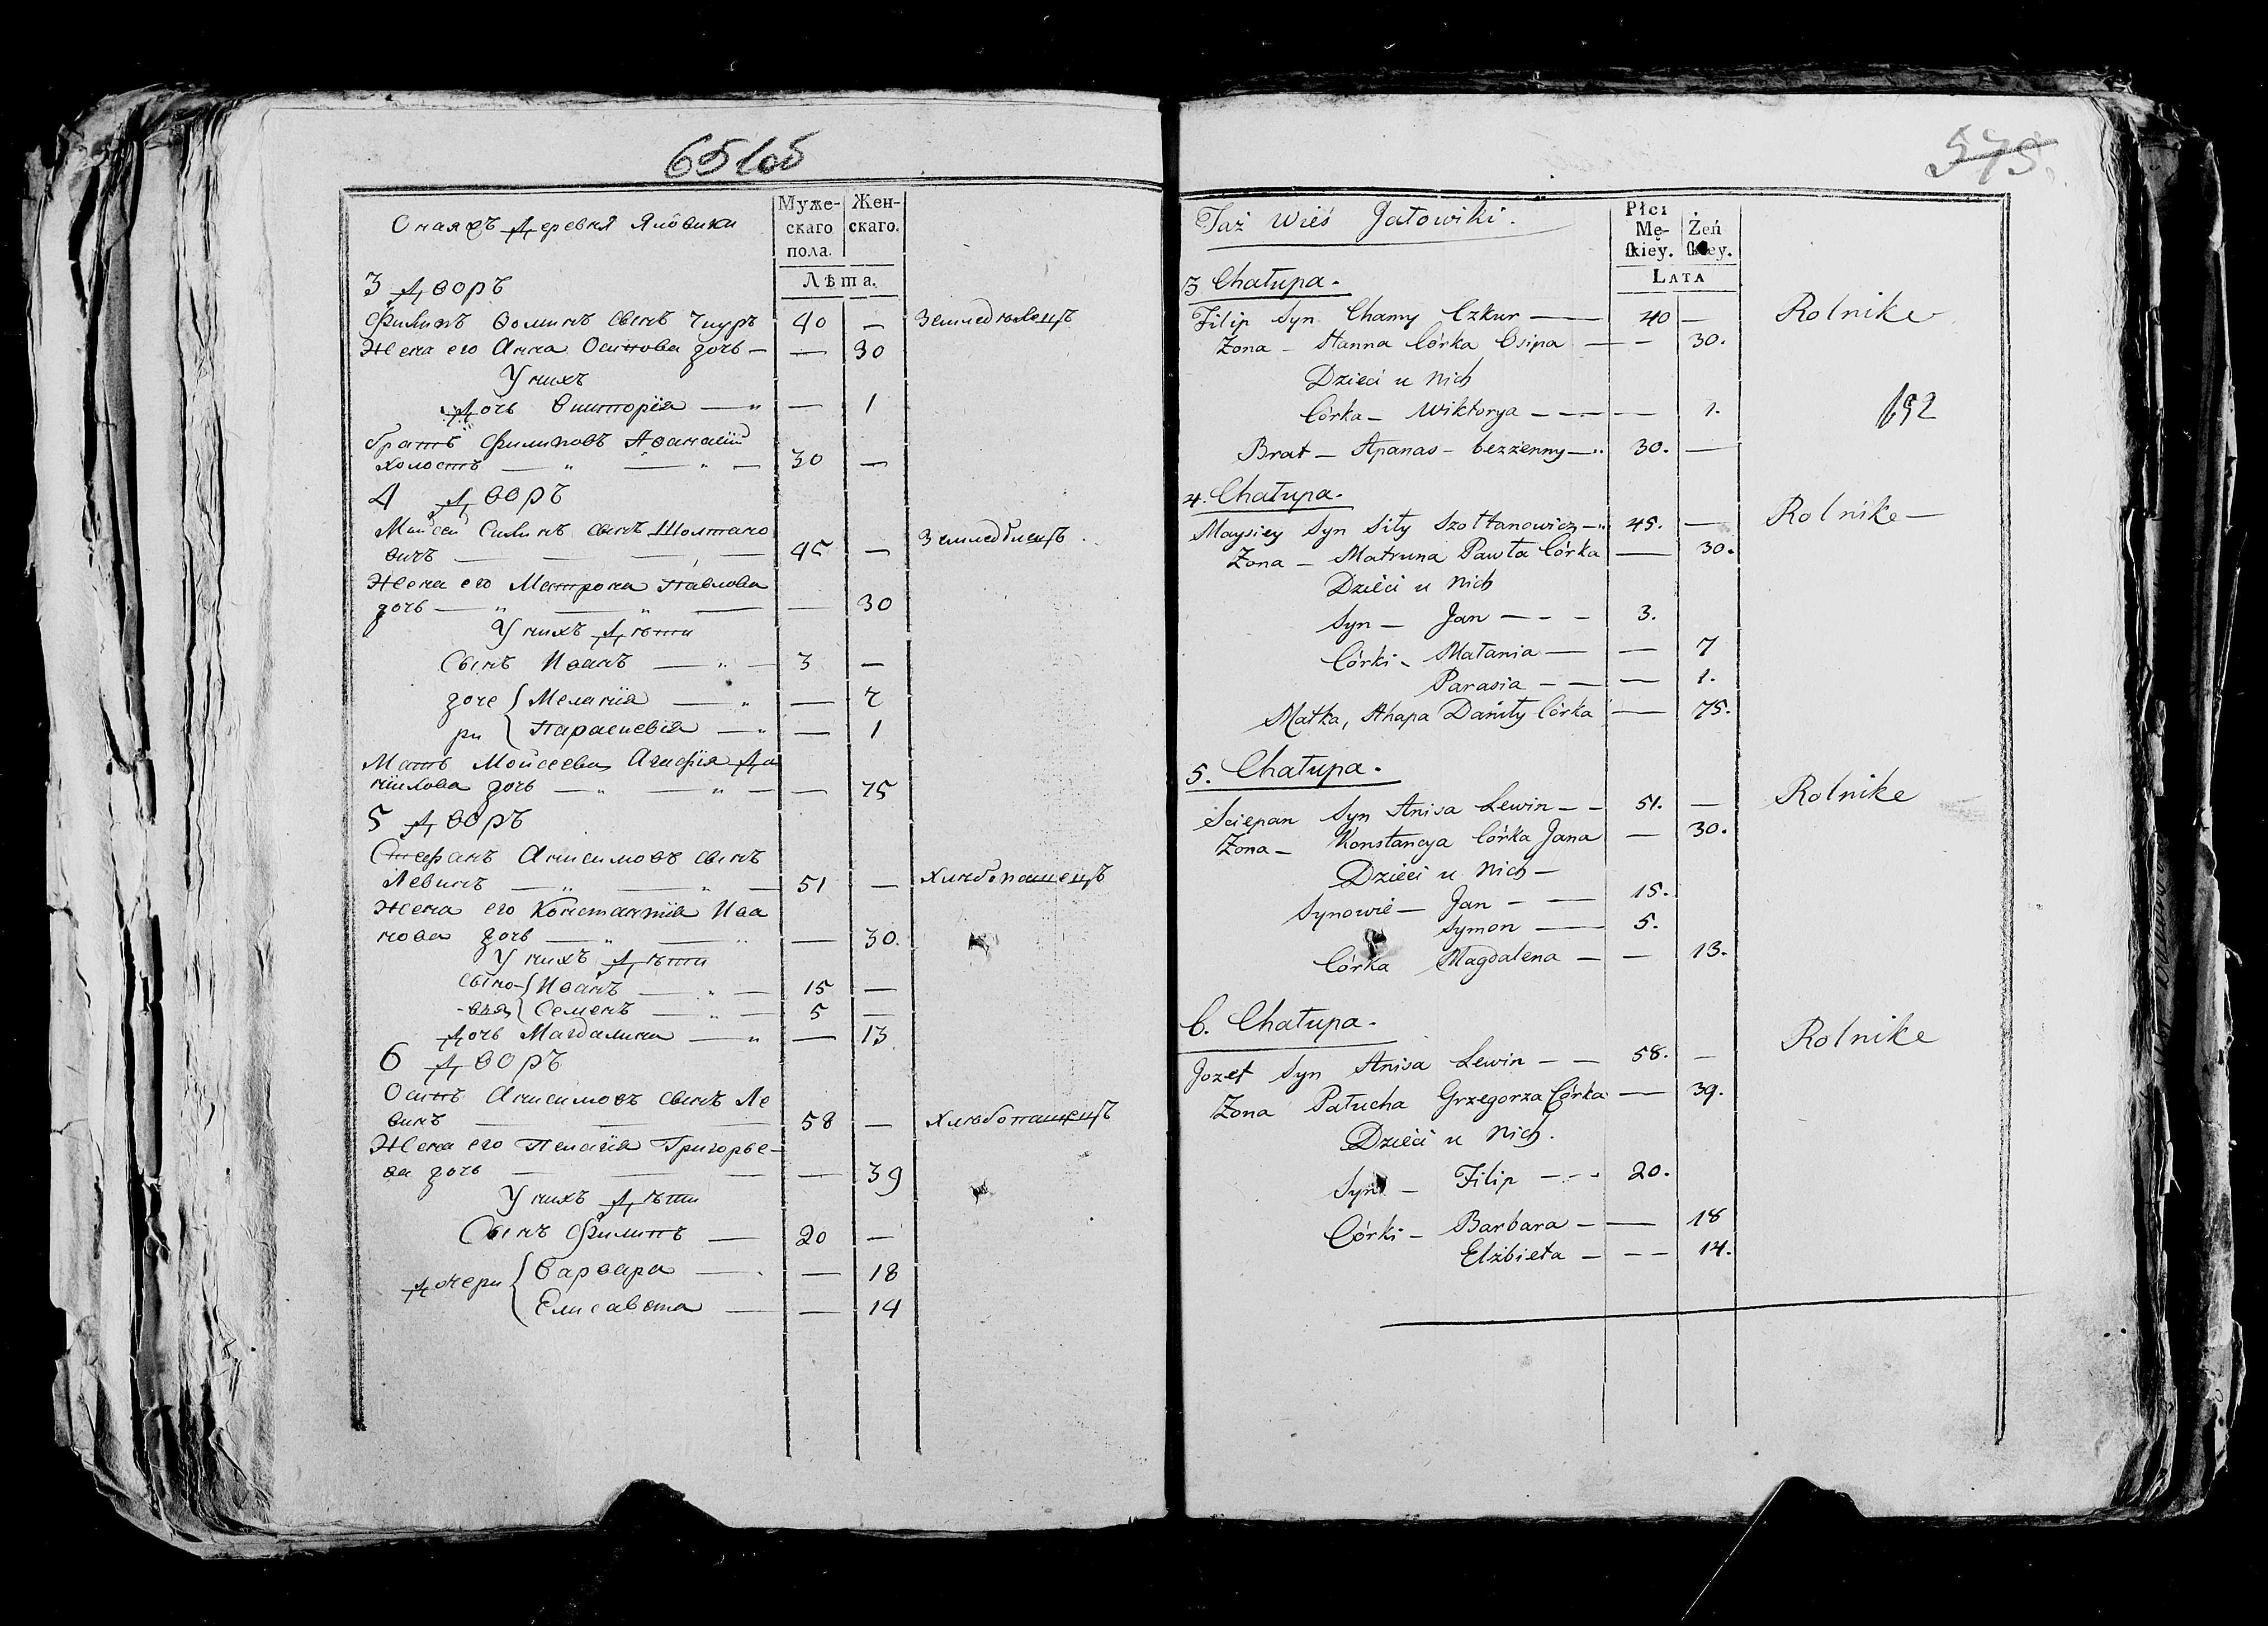 651об
Оная жъ Деревня Яловики
Муже-
скаго
пола.
Жен-
скаго.
Лѣта.
3 Дворъ
Филипъ Ѳоминъ сынъ Чкуръ 40 —
Земледѣлецъ
Жена его Анна Осипова дочь — — 30
У нихъ
Дочь Викторія — „ — 1
братъ Филиповъ Аѳанасій
холостъ — „ — „ — 30 —
4 Дворъ
Моисей Силинъ сынъ Шолтано
вичъ — — — 45 —
Земледѣлецъ.
Жена его Матрона Павлова
дочь — „ — „ — — 30
У нихъ Дѣти
Сынъ Иванъ — „ — 3 —
доче { Меланія — „ — 7
ри { Параскевія — „ — 1
Мать Моисеева Агафія Да
нилова дочь — „ — „ — — 75
5 Дворъ
Стефанъ Анисимовъ сынъ
Левинъ — „ — „ — 51 —
Хлѣбопашецъ
Жена его Констанція Ива
нова дочь — „ — „ — 30.
У нихъ Дѣти
сыно- { Иванъ — „ — 15 —
-вья { Семенъ — „ — 5 —
Дочь Магдалина — „ — 13
6 Дворъ
Осипъ Анисимовъ сынъ Ле
винъ — — 58 —
Хлѣбопашецъ
Жена его Пелагія Григорье-
ва дочь — — — 39
У нихъ Дѣти
Сынъ Филипъ — 20 —
Дочери { Варвара — . — 18
{ Елисавета — — 14
575.
Taż Wieś Jałowiki.
Płci
Mę-
ſkiey.
Żeń
ſkiey.
LATA
3. Chałupa.
Filip Syn Chamy Czkur — 40 —
Rolnike
Zona — Hanna Córka Osipa — — 30.
Dzieci u Nich
Córka — Wiktorya — — — — 1.
692
Brat — Apanas — bezżenny — „ 30. —
4. Chałupa.
Maysiey Syn Siły Szołtanowicz — „ 45. —
Rolnike —
Zona — Matruna Pawła Córka — 30.
Dzieci u Nich
Syn — Jan — — — 3.
Córki — Małania — — 7
Parasia — — — 1.
Matka, Ahapa Daniły Córka — 75.
5. Chałupa.
Sciepan Syn Anisa Lewin — — 51. —
Rolnike
Zona — Konstancya Córka Jana — 30.
Dzieci u Nich —
Synowie — Jan — — 15.
Symon — 5.
Córka Magdalena — — 13.
6. Chałupa.
Jozef Syn Anisa Lewin — — 58. —
Rolnike
Zona Pałucha Grzegorza Córka — 39.
Dzieci u Nich.
Syn — Filip — — 20.
Córki — Barbara — — 18
Elżbieta — — — 14.